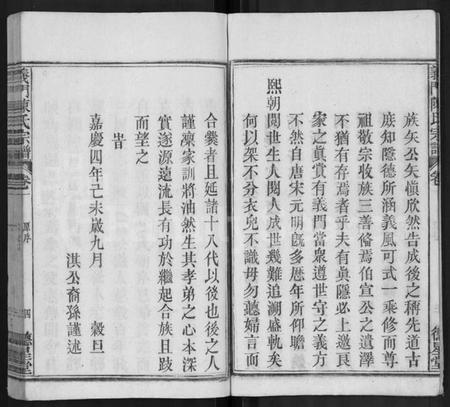 義門陳氏宗譜
卷
德星堂
族矣公矣愼欣然告成後之稱先道古
底知隱德所涵義風可式一乘修而尊
祖敬宗收族三善俻焉伯宣公之遺澤
不猶有存焉者乎夫有眞隱必上邀
家之眞賞有義門當衆遵世守之義方
不然自唐宋元明旣多歷年所仰瞻
熙朝閱世生人閱人成世幾難追溯盛軌矣
何以架不分衣兒不識母勿聽婦言而
合爨者且延諸十八代以後也後之人
謹凜家訓將油然生其孝弟之心本深
實遂源遠流長有功於繼起合族且跂
而望之
旹
嘉慶四年己未歲九月 穀旦
淇公裔孫謹述
義門陳氏宗譜
卷
四
德星堂